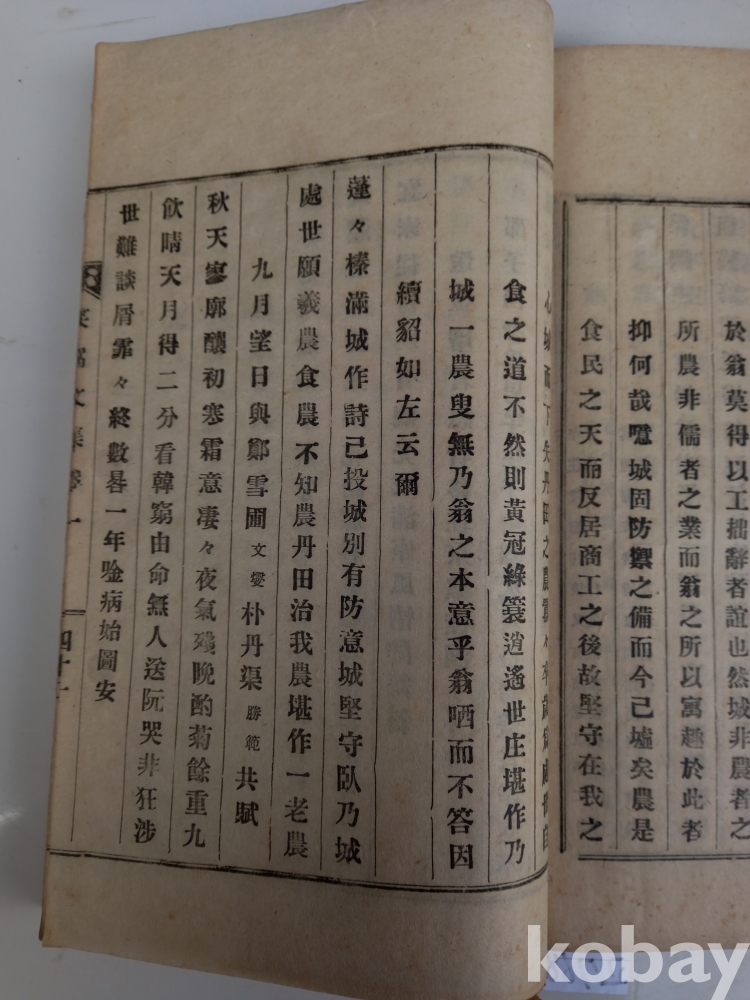 於翁莫得以工拙辭者誼也然城非農者之
所農非儒者之業而翁之所以寓趣於此者
抑何哉噫城固防禦之備而今已墟矣農是
食民之天而反居商工之後故堅守在我之
食之道不然則黃冠綠簑逍遙世庄堪作乃
城一農叟無乃翁之本意乎翁哂而不答因
續貂如左云爾
蓬々榛滿城作詩已投城別有防意城堅守臥乃城
處世願羲農食農不知農丹田治我農堪作一老農
九月望日與鄭雪圃文燮朴丹渠勝範共賦
秋天寥廓釀初寒霜意凄々夜氣殘晩酌菊餘重九
飮晴天月得二分看韓窮由命無人送阮哭非狂涉
世難談屑霏々終數晷一年唫病始圖安
文集卷一
四十一
kobay